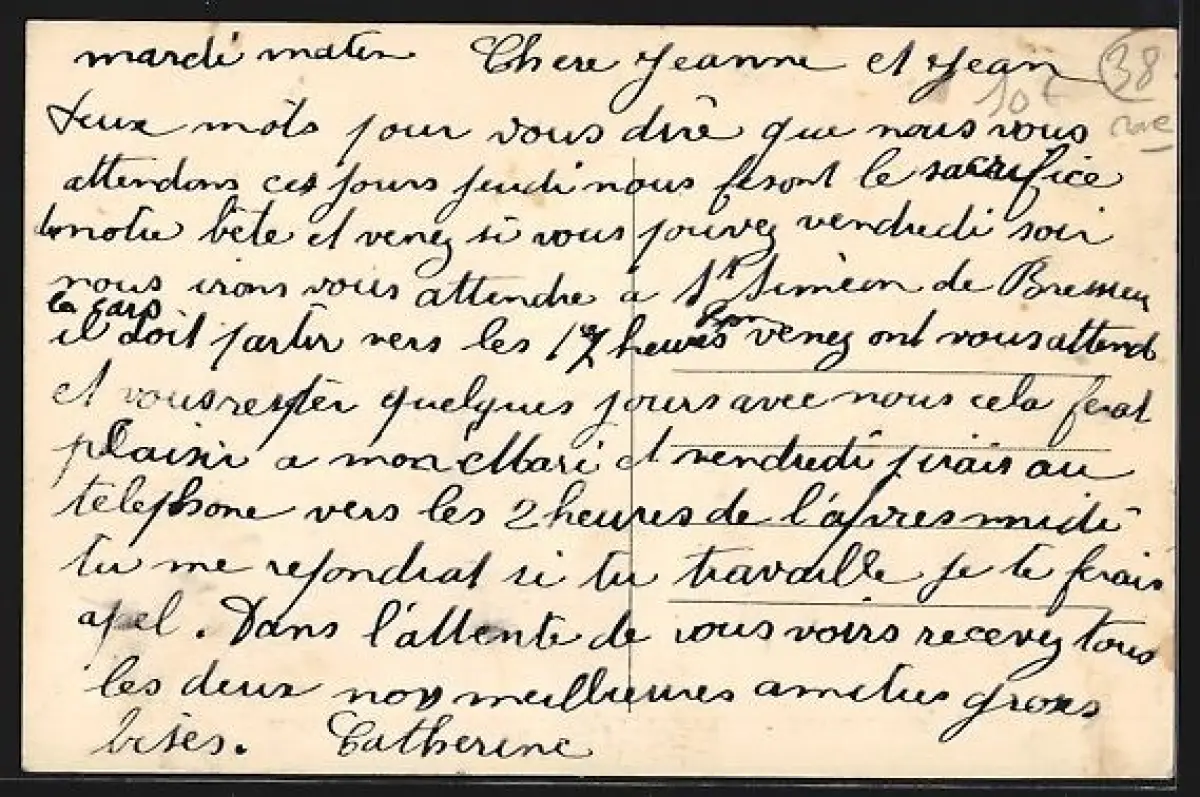 mardi matin Chere Jeanne et Jean
38
10€
rare
deux mots pour vous dire que nous vous
attendons ces jours jeudi nous fesont le sacrifice
de notre bête et venez si vous pouvez vendredi soir
nous irons vous attendre a St Siméon de Bressieu
le cars
il doit partir vers les 17 heures venez ont vous attend
et vous rester quelques jours avec nous cela ferat
plaisir a mon Mari et vendredi jirais au
telephone vers les 2 heures de l'apres midi
tu me repondrat si tu travaille je te ferais
apel. Dans l'attente de vous voirs recevez tous
les deux nos meillieures amities groses
bises. Catherine